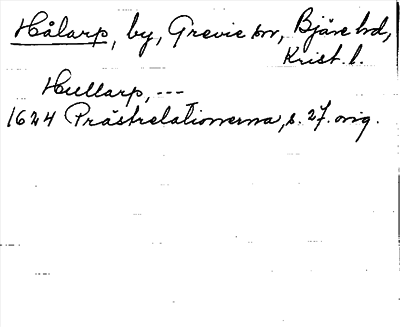 Hålarp, by, Grevie sn, Bjäre hd,
Krist. l.
Hullarp, ---
1624 Prästrelationerna, s. 27. orig.